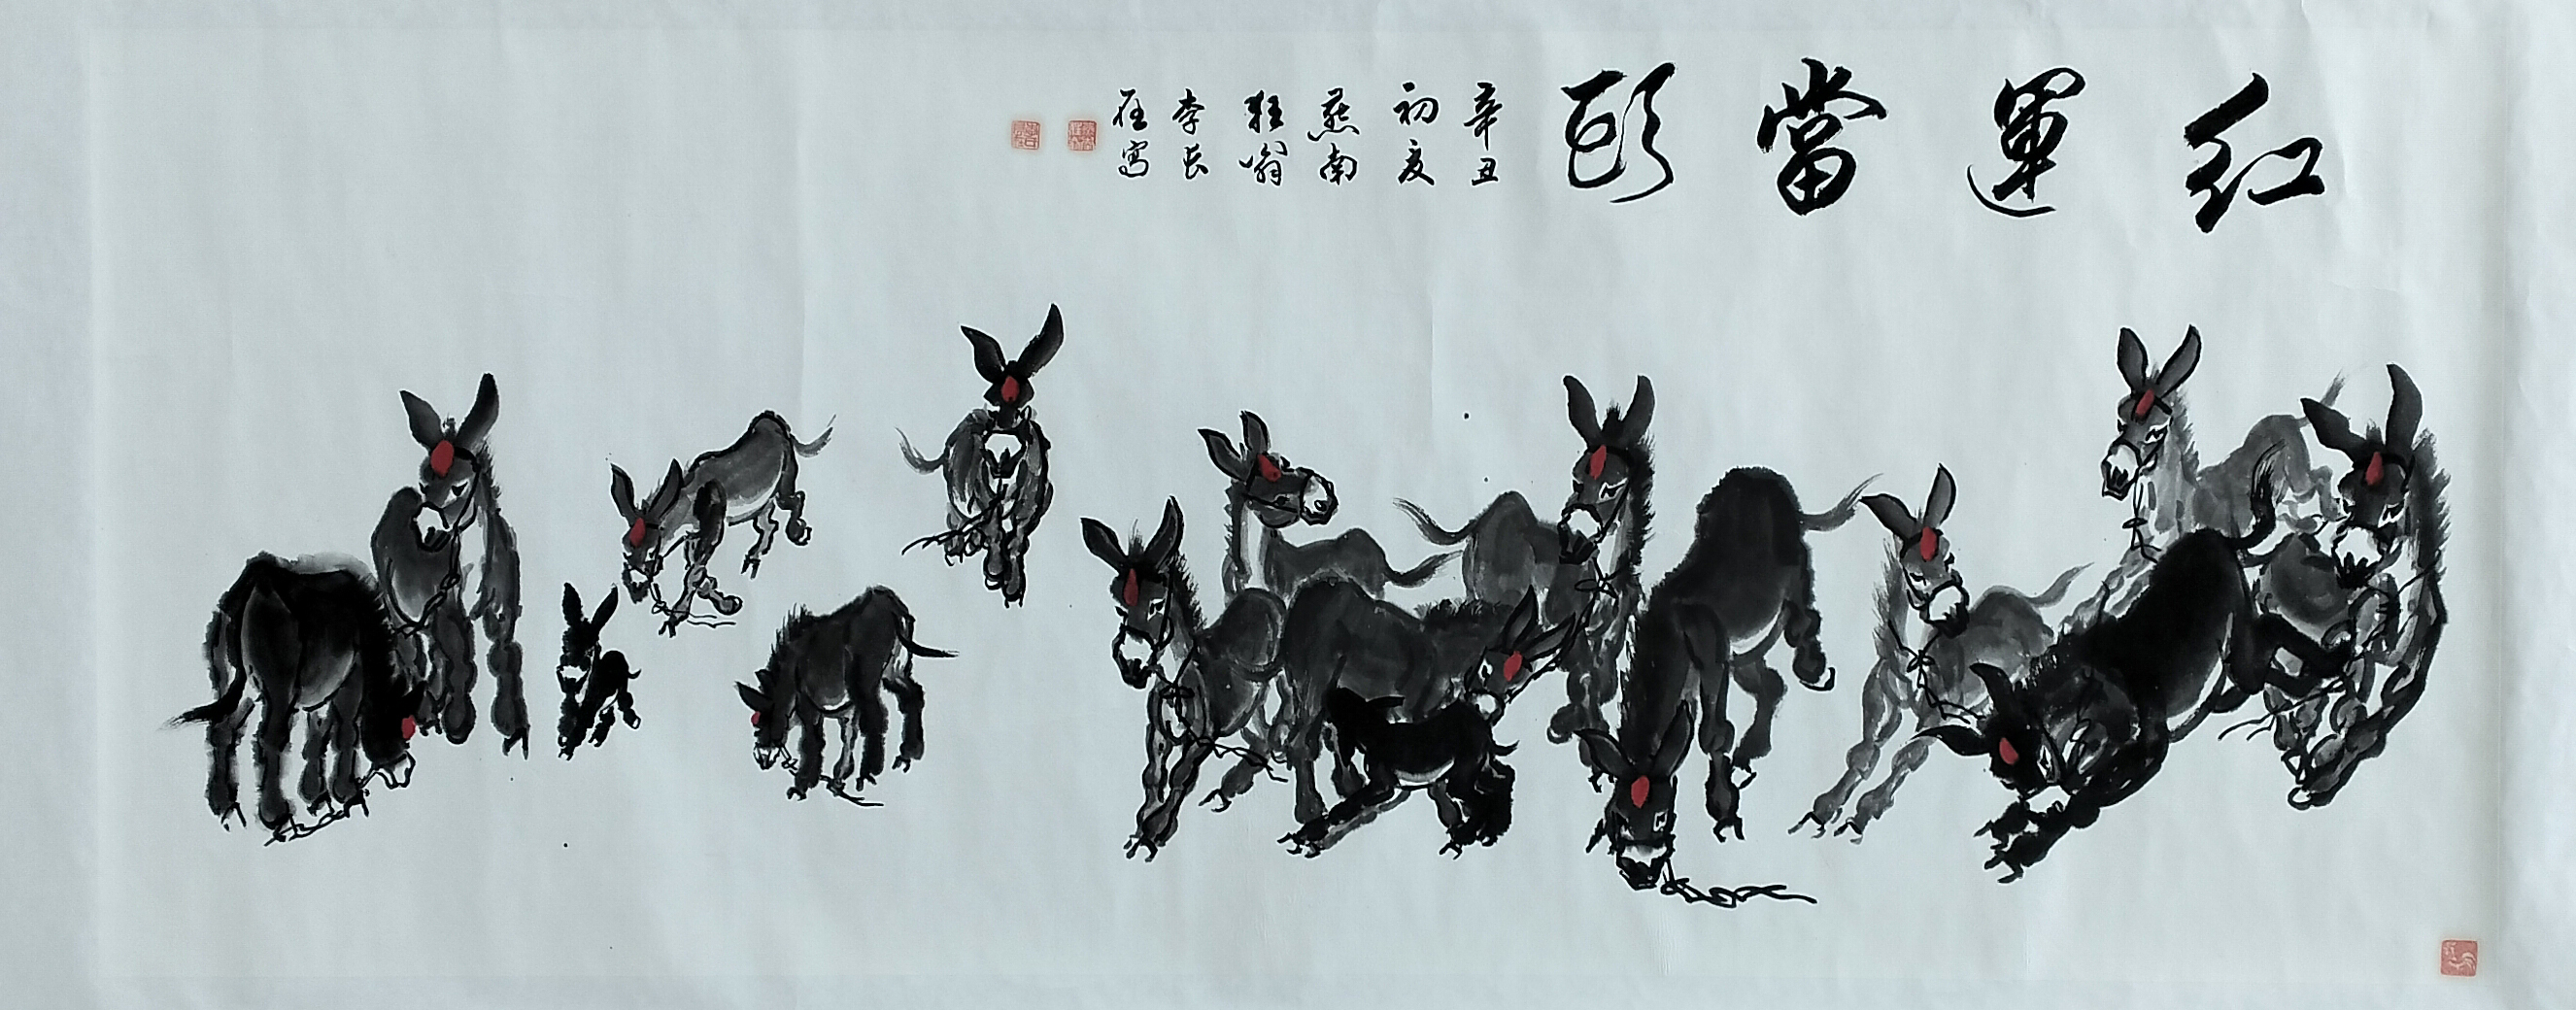 红運當頭
辛丑
初夏
燕南
狂翁
李长
在寫